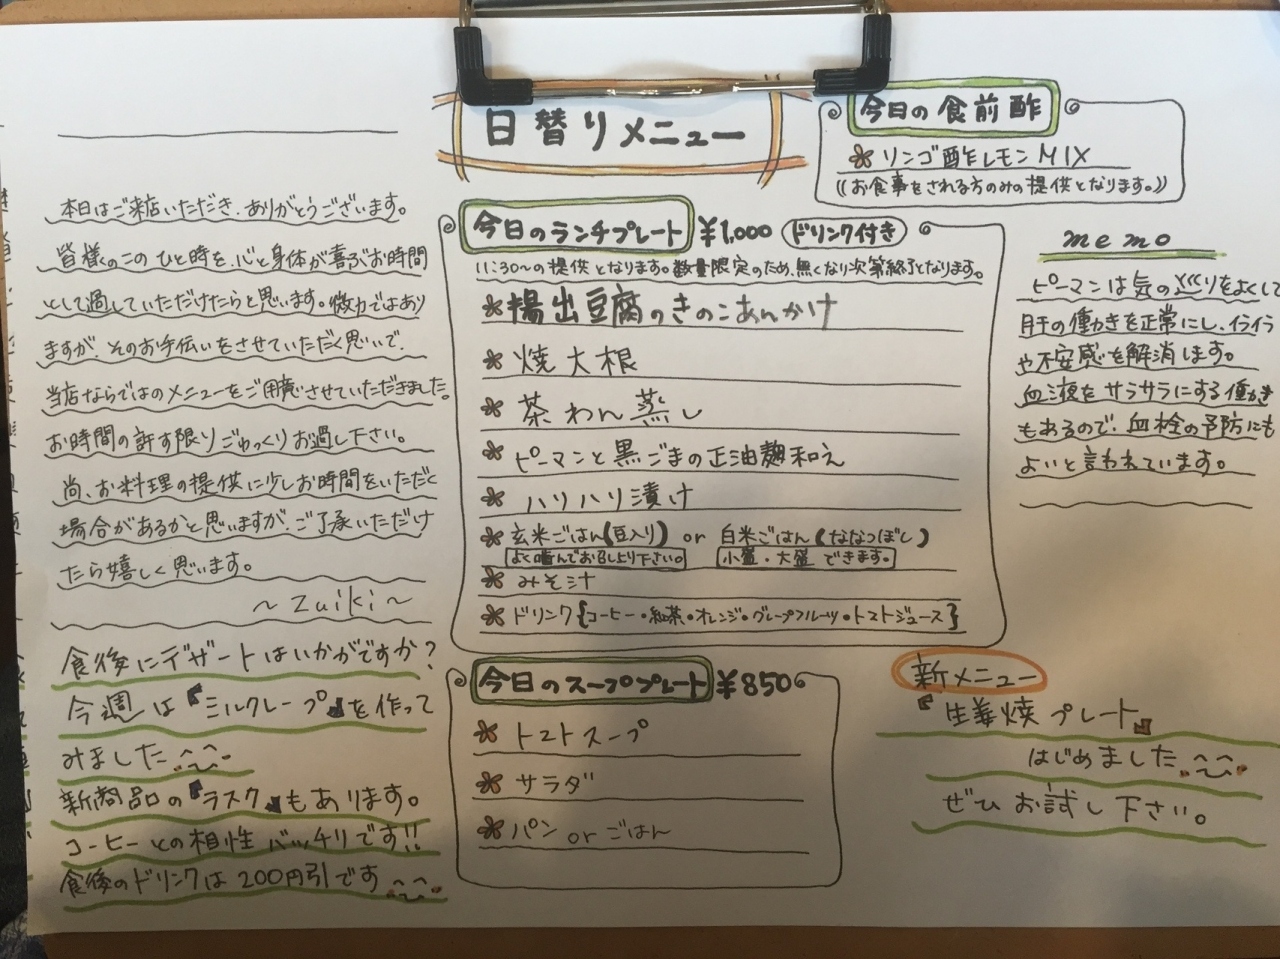 日替りメニュー
今日の食前酢
リンゴ酢レモンMIX
((お食事をされる方のみの提供となります。))
本日はご来店いただき、ありがとうございます。
皆様のこのひと時を、心と身体が喜ぶお時間
として過していただけたらと思います。微力ではあり
ますが、そのお手伝いをさせていただく思いで、
当店ならではのメニューをご用意させていただきました。
お時間の許す限りごゆっくりお過し下さい。
尚、お料理の提供に少しお時間をいただく
場合があるかと思いますが、ご了承いただけ
たら嬉しく思います。
〜Zuiki〜
食後にデザートはいかがですか?
今週は『ミルクレープ』を作って
みました
新商品の『ラスク』もあります。
コーヒーとの相性バッチリです!!
食後のドリンクは200円引です
今日のランチプレート ¥1,000 ドリンク付き
11:30〜の提供となります。数量限定のため、無くなり次第終了となります。
揚出豆腐のきのこあんかけ
焼大根
茶わん蒸し
ピーマンと黒ごまの正油麹和え
ハリハリ漬け
玄米ごはん(豆入り) or 白米ごはん(ななつぼし)
よく噛んでお召し上り下さい。 小盛・大盛できます。
みそ汁
ドリンク{コーヒー・紅茶・オレンジ・グレープフルーツ・トマトジュース}
今日のスーププレート ¥850
トマトスープ
サラダ
パン or ごはん
memo
ピーマンは気の巡りをよくして
肝の働きを正常にし、イライラ
や不安感を解消します。
血液をサラサラにする働き
もあるので、血栓の予防にも
よいと言われています。
新メニュー
『生姜焼プレート』
はじめました
ぜひお試し下さい。